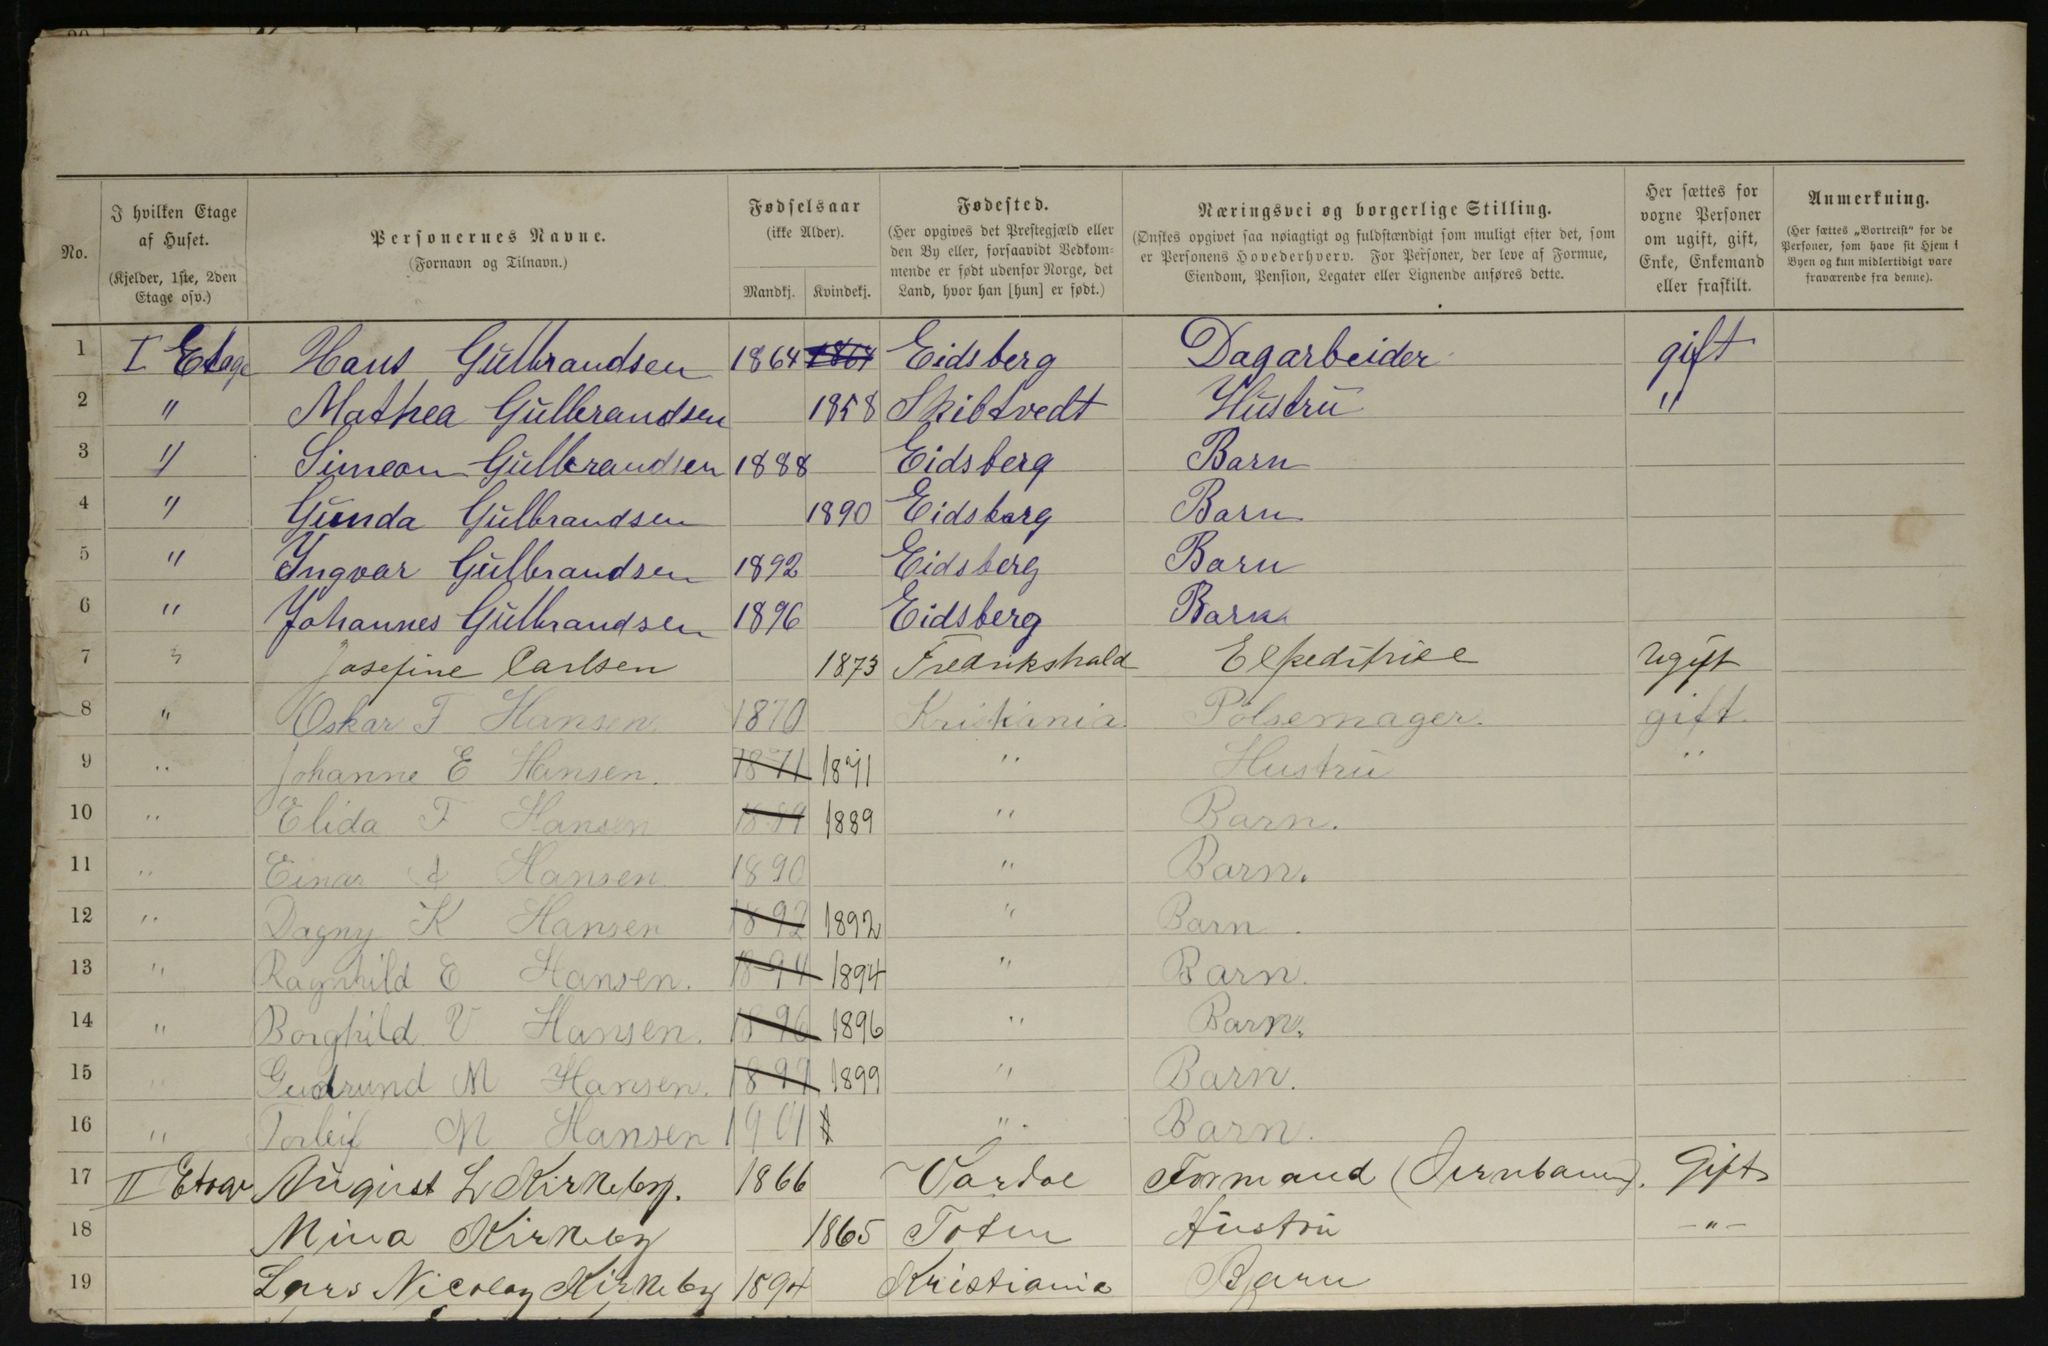 No. | I hvilken Etage af Huset. (Kjelder, 1ste, 2den Etage osv.) | Personernes Navne. (Fornavn og Tilnavn.) | Fødselsaar (ikke Alder). Mandkj. | Kvindekj. | Fødested. (Her opgives det Prestegjæld eller den By eller, forsaavidt Vedkommende er født udenfor Norge, det Land, hvor han [hun] er født.) | Næringsvei og borgerlige Stilling. (Ønskes opgivet saa nøiagtigt og fuldstændigt som muligt efter det, som er Personens Hovederhverv. For Personer, der leve af Formue, Eiendom, Pension, Legater eller Lignende anføres dette. | Her sættes for voxne Personer om ugift, gift, Enke, Enkemand eller fraskilt. | Anmerkning. (Her sættes „Bortreist" for de Personer, som have sit Hjem i Byen og kun midlertidigt vare fraværende fra denne).
1 I Etage Hans Gulbrandsen 1864 1864 Eidsberg Dagarbeider gift
2 " Mathea Gulbrandsen 1858 Skibtvedt Hustru "
3 " Simeon Gulbrandsen 1888 Eidsberg Barn
4 " Gunda Gulbrandsen 1890 Eidsberg Barn
5 " Yngvar Gulbrandsen 1892 Eidsberg Barn
6 " Johannes Gulbrandsen 1896 Eidsberg Barn
7 " Josefine Carlsen 1873 Fredrikshald Expeditrice Ugift
8 " Oskar F Hansen 1870 Kristiania Pølsemager. gift
9 " Johanne E Hansen. 1871 1871 " Hustru "
10 " Elida F Hansen 1889 1889 " Barn.
11 " Einar A Hansen 1890 " Barn.
12 " Dagny K Hansen 1892 1892 " Barn
13 " Ragnhild E Hansen. 1894 1894 " Barn.
14 " Borghild V Hansen. 1896 1896 " Barn.
15 " Gudrund M Hansen. 1899 1899 " Barn.
16 " Torleif M Hansen 1901 " Barn.
17 II Etage August L Kirkeby. 1866 Vardoe Formand (Jernbanen). Gift
18 Mina Kirkeby 1865 Toten Hustru -"-
19 Lars Nicolay Kirkeby 1894 Kristiania Barn